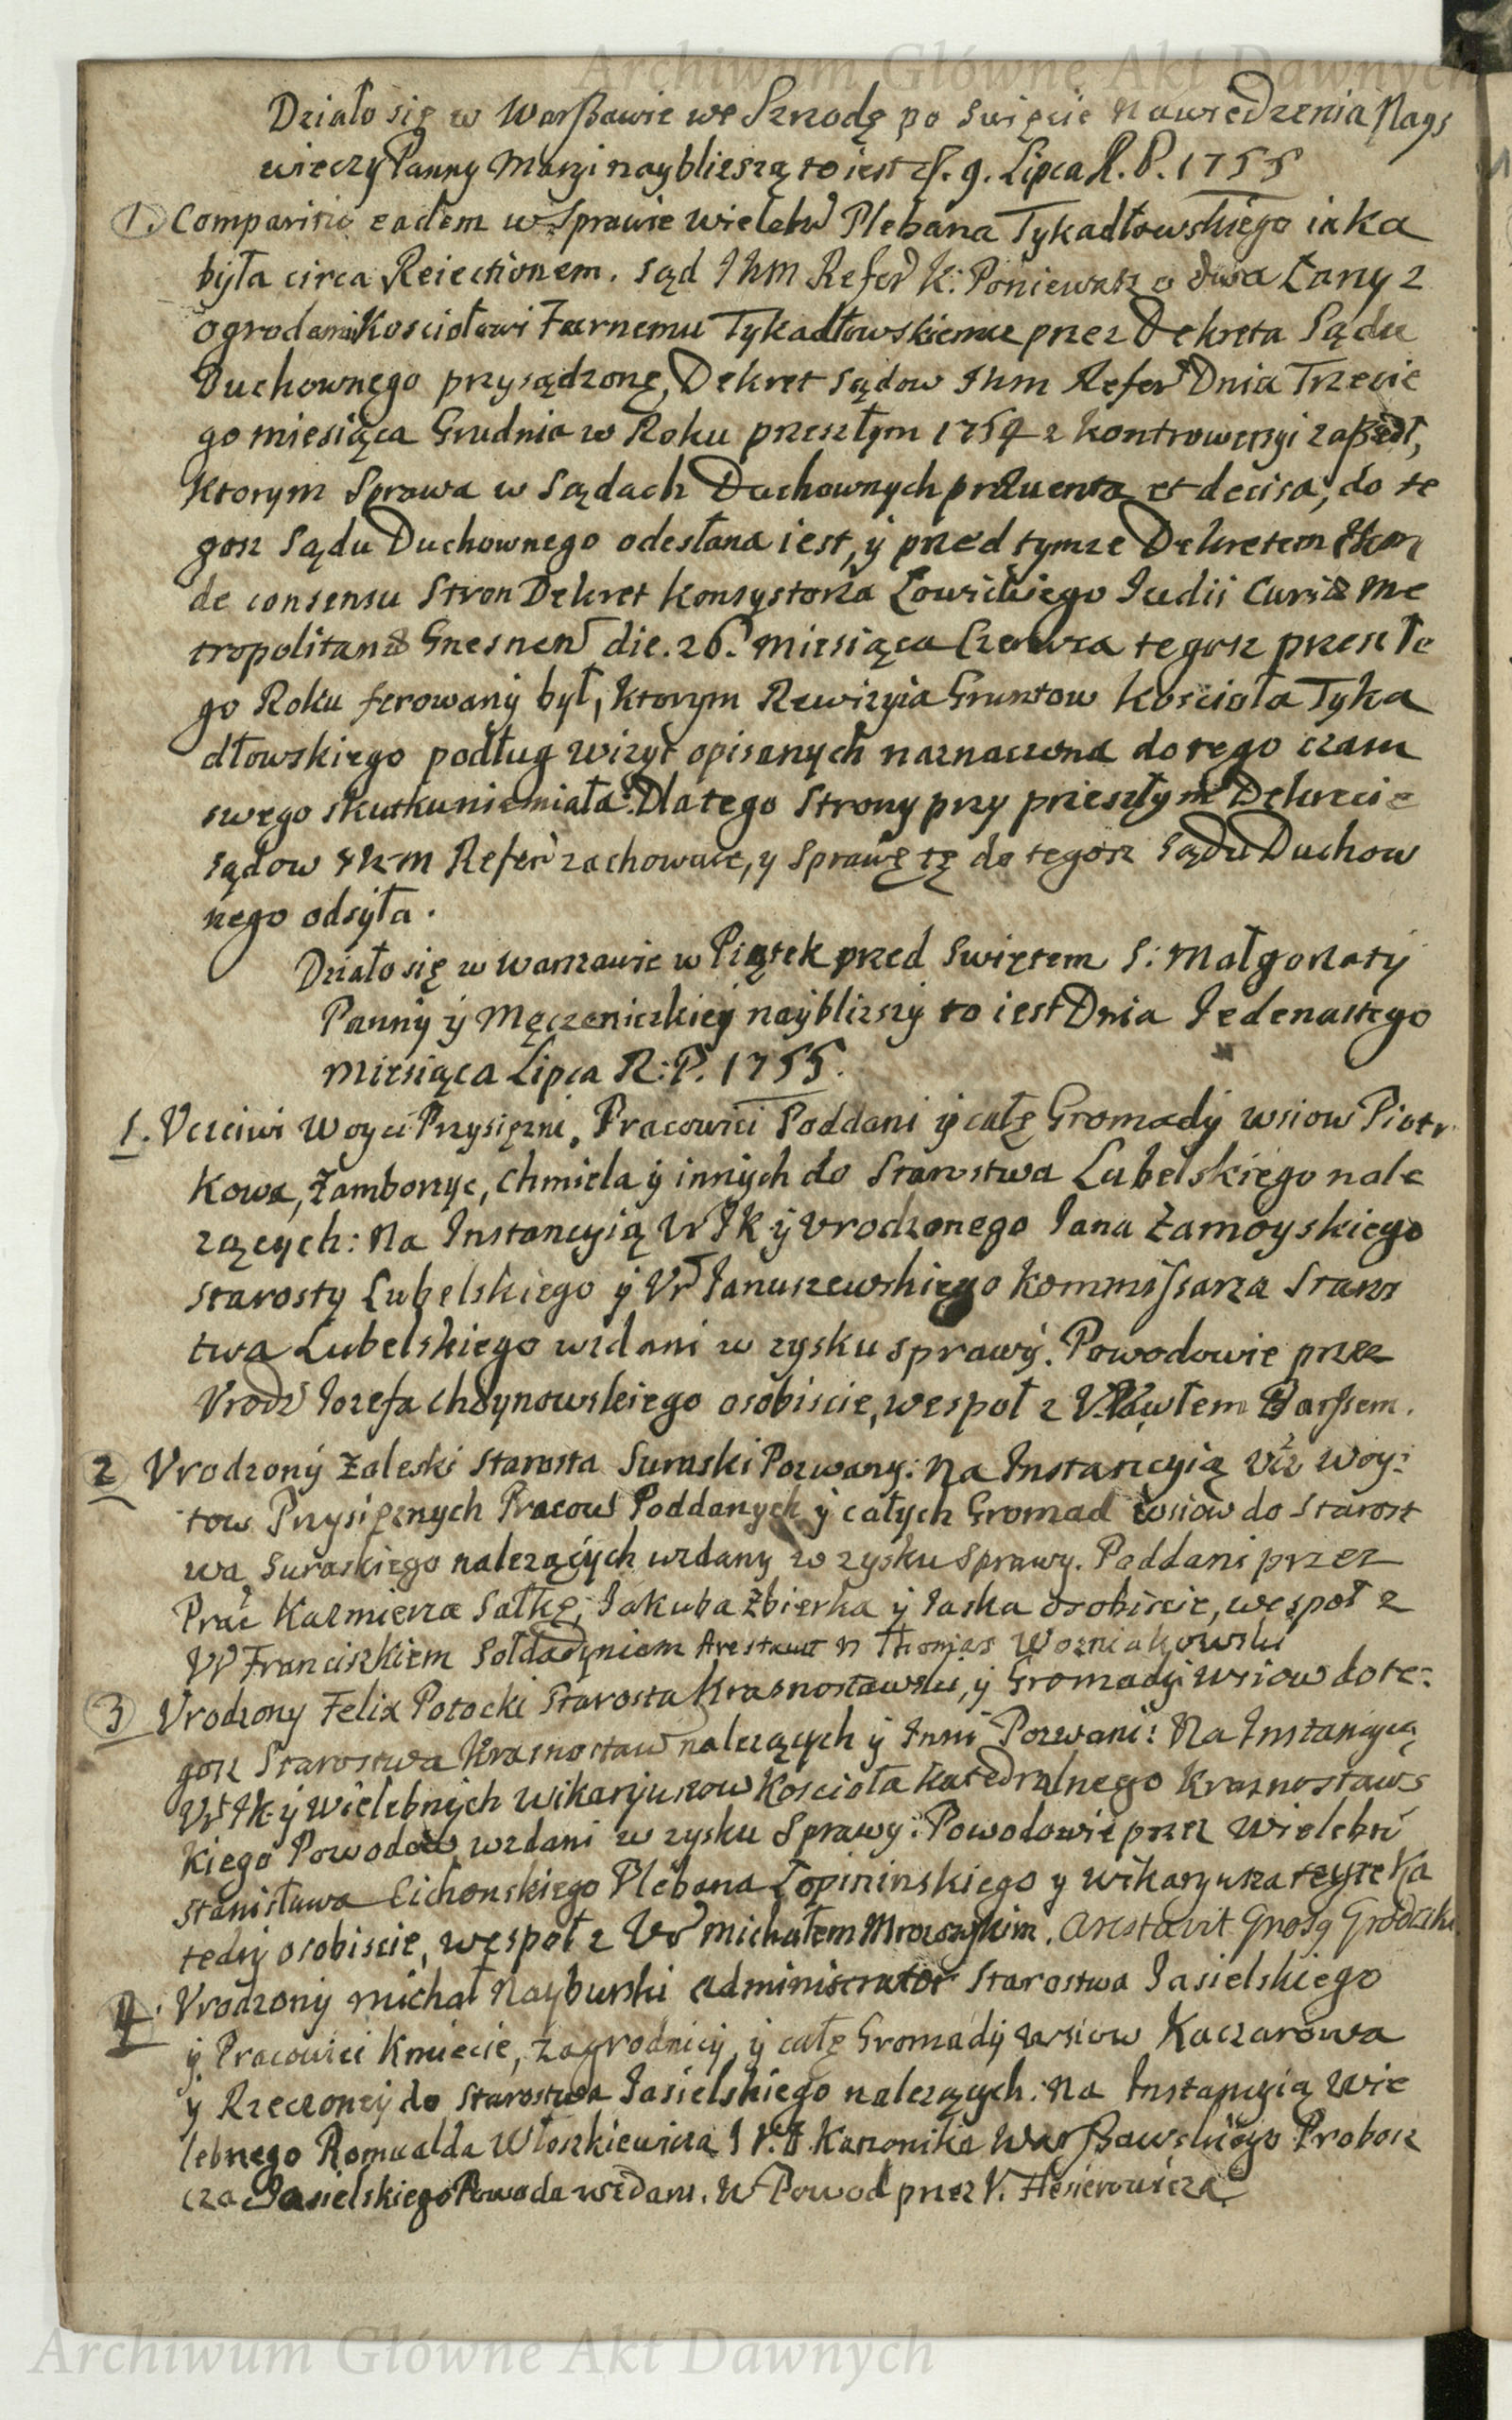 Archiwum Główne Akt Dawnych
Działo się w Warszawie we Szrodę po Swięcie Nawiedzenia Nays
więczy Panny Maryi naybliższą to iest d. 9. Lipca R. P. 1755
1. Comparitio eadem w Sprawie Wieleb Plebana Tykadłowskiego iaka
była circa Reiectionem. Sąd JKM Refer K: Poniewasz o dwa Łany z
ogrodami Kosciołowi Farnemu Tykadłowskiemu przez Dekreta Sądu
Duchownego przysądzonę, Dekret Sądow JKM Refer Dnia Trzecie
go miesiąca Grudnia w Roku przeszłym 1754 z kontrowersyi zaszedł,
Ktorym Sprawa w Sądach Duchownych præuenta et decisa, do te
gosz Sądu Duchownego odesłana iest, y przed tymze Dekretem
de consensu Stron Dekret Konsystorza Łowickiego Iudii Curiæ Me
tropolitanæ Gnesnen die. 26. Miesiąca Czerwca tegosz przeszłe
go Roku ferowany był, ktorym Rewizyia Gruntow Koscioła Tyka
dłowskiego podług wizyt opisanych naznaczona do tego czasu
swego skutku niemiała: Dlatego Strony przy przeszłym Dekrecie
Sądow JKM Refer zachowuie, y Sprawę tę do tegosz Sądu Duchow
nego odsyła.
Działo się w Warszawie w Piątek przed Swiętem S: Małgorzaty
Panny y Męczeniczkiey naybliższy to iest Dnia Iedenastego
Miesiąca Lipca R: P. 1755.
1. Vczciwi Woyci Przysięzni, Pracowici Poddani y całę Gromady wsiow Piotr
kowa, Zamborzyc, Chmiela y innych do Starostwa Lubelskiego nale
zących: Na Instancyią W JK y Vrodzonego Iana Zamoyskiego
Starosty Lubelskiego y Vr Ianuszewskiego Kommissarza Staros
twa Lubelskiego wzdani w zysku sprawy. Powodowie przez
Vrodz Iozefa Chdynowskiego osobiscie, wespoł z V. Pawłem Barssem.
2 Vrodzony Zaleski Starosta Suraski Pozwany: Na Instancyią Vcz Woy:
tow Przysięznych Pracow Poddanych y całych Gromad wsiow do Starost
wa Suraskiego nalezących wzdany w zysku Sprawy. Poddani przez
Prac Kazmierza Sałkę, Iakuba Zbierka y Iaska osobiscie, wespoł z
Vr Franciszkiem Sołdadyniem Arestawit N Thomas Wozniakowski
3 Vrodzony Felix Potocki Starosta Krasnostawski, y Gromady wsiow do te:
gosz Starostwa Krasnostaw nalezących y Inni Pozwani: Na Instancyią
W JK y Wielebnych Wikaryiuszow Koscioła Katedralnego Krasnostaws
kiego Powodow wzdani w zysku Sprawy: Powodowie przez Wielebn
Stanisława Cichonskiego Plebana Łopininskiego y Wikaryusza teyze Ka
tedry osobiscie, wespoł z Vr Michałem Mrozowskim. Arestavit Grosz Grodzki
4. Vrodzony Michał Rayburski Administrator Starostwa Iasielskiego
y Pracowici Kmiecie, Zagrodnicy, y całę Gromady wsiow Kaczarowa
y Rzeczoney do Starostwa Iasielskiego nalezących: Na Instancyią Wie
lebnego Romualda Włoszkiewicza Kanonika Warszawskiego Probosz
cza Iasielskiego Powoda wzdani. W Powod przez V. Hesierowicza
Archiwum Główne Akt Dawnych